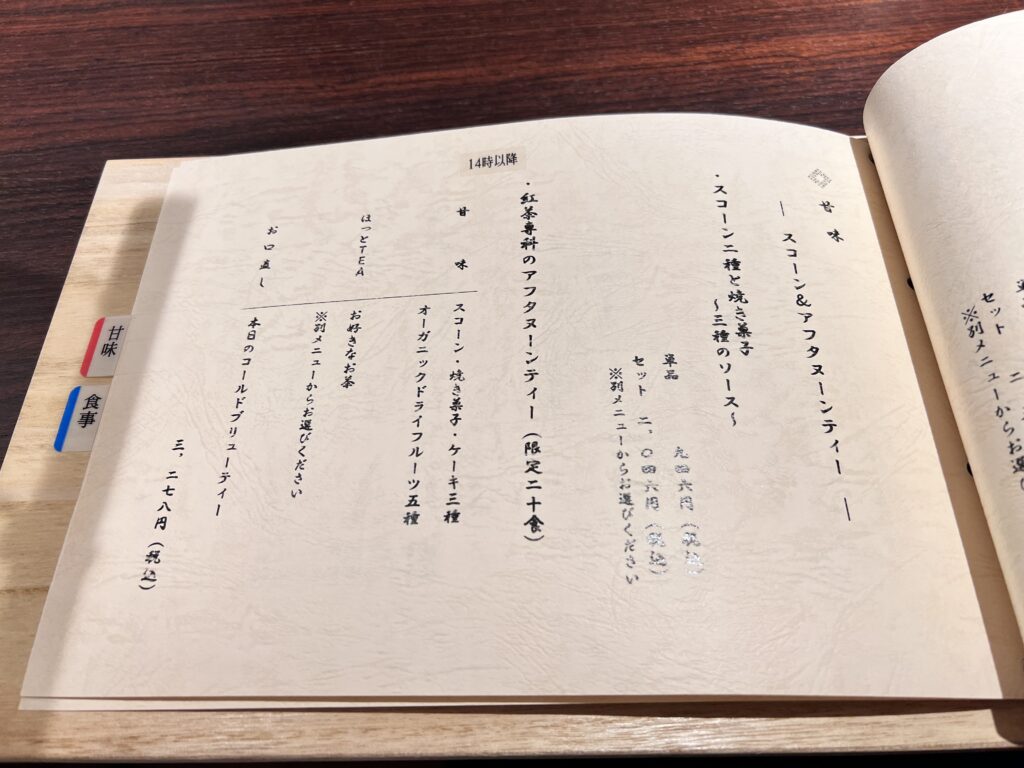 甘味
― スコーン＆アフタヌーンティー ―
・スコーン二種と焼き菓子
～三種のソース～
単品 九四六円（税込）
セット 二、〇四六円（税込）
※別メニューからお選びください
14時以降
・紅茶専科のアフタヌーンティー（限定二十食）
甘味
スコーン・焼き菓子・ケーキ三種
オーガニックドライフルーツ五種
ほっとTEA
お好きなお茶
※別メニューからお選びください
お口直し
本日のコールドブリューティー
三、二七八円（税込）
甘味
食事
セット
※別メニューからお選び